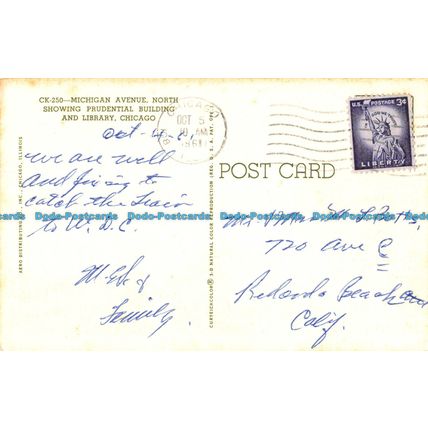 CK-250—MICHIGAN AVENUE, NORTH
SHOWING PRUDENTIAL BUILDING
AND LIBRARY, CHICAGO
Oct
we are well
and fixing to
catch the train
to W.D.C.
Family
CHICAGO
OCT 5
AM
1961
U.S. POSTAGE 3¢
LIBERTY
POST CARD
Mr.
720 Ave C
Redondo Beach
Calif.
AERO DISTRIBUTING CO., INC., CHICAGO, ILLINOIS
CURTEICHCOLOR® 3-D NATURAL COLOR REPRODUCTION (REG. U.S.A. PAT. OFF.)
Dodo-Postcards Dodo-Postcards Dodo-Postcards Dodo-Postcards
Dodo-Postcards Dodo-Postcards Dodo-Postcards Dodo-Postcards